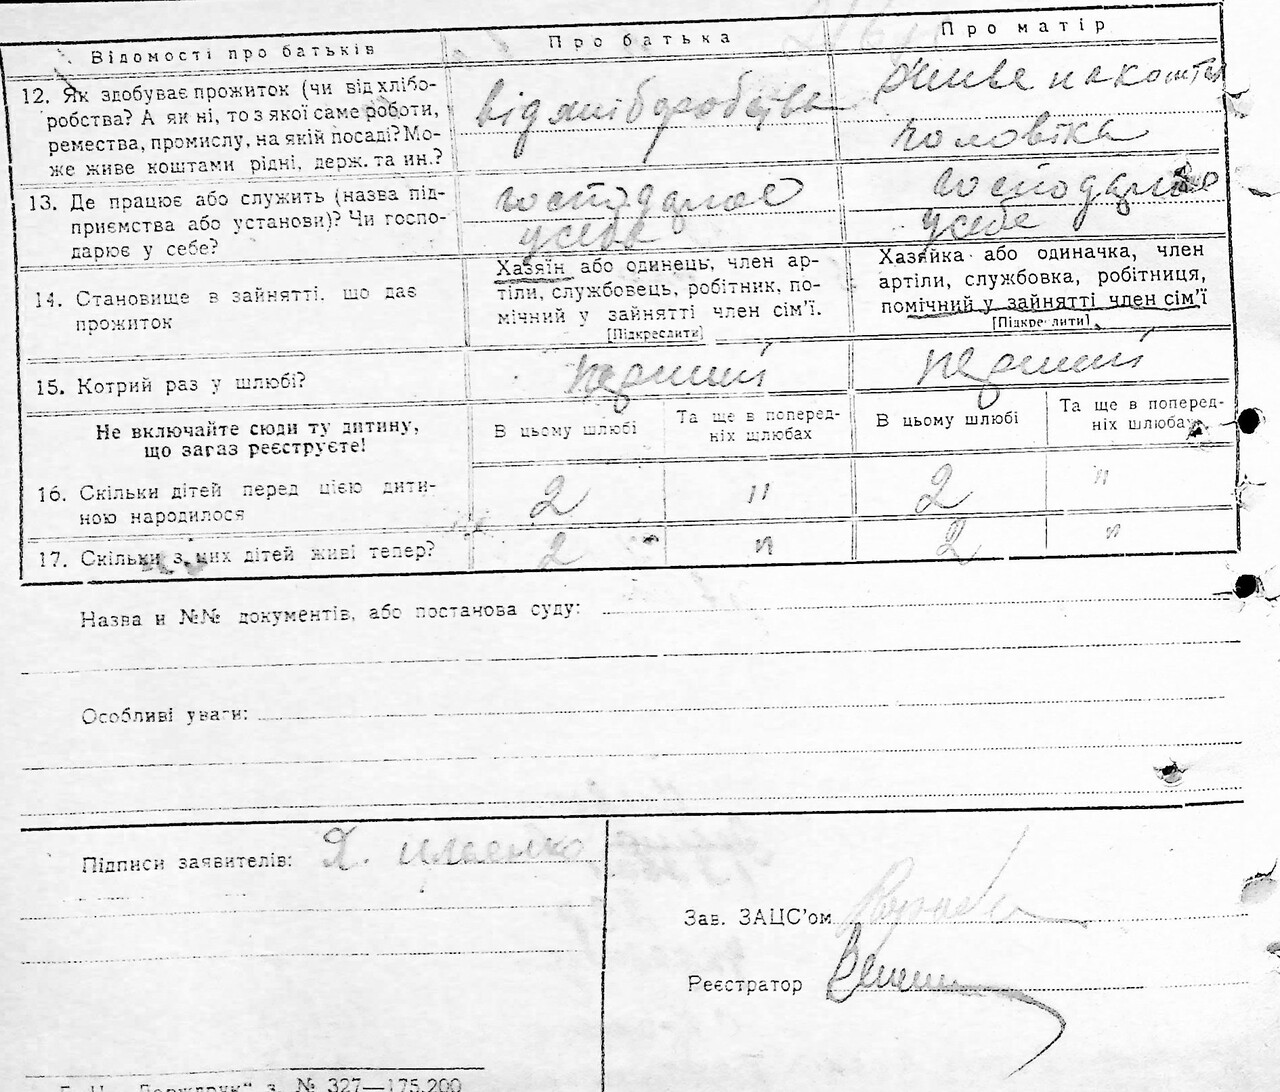 Відомості про батьків
Про батька
Про матір
12. Як здобуває прожиток (чи від хлібо-
робства? А як ні, то з якої саме роботи,
ремества, промислу, на якій посаді? Мо-
же живе коштами рідні, держ. та ин.?
від хліборобства
живе на кошти
чоловіка
13. Де працює або служить (назва під-
приємства або установи)? Чи госпо-
дарює у себе?
господарює
у себе
господарює
у себе
14. Становище в зайнятті, що дає
прожиток
Хазяїн або одинець, член ар-
тіли, службовець, робітник, по-
мічний у зайнятті член сім’ї.
[Підкреслити]
Хазяйка або одиначка, член
артіли, службовка, робітниця,
помічний у зайнятті член сім’ї
[Підкреслити]
15. Котрий раз у шлюбі?
перший
перший
Не включайте сюди ту дитину,
що зараз реєструєте!
В цьому шлюбі
Та ще в поперед-
ніх шлюбах
В цьому шлюбі
Та ще в поперед-
ніх шлюбах
16. Скільки дітей перед цією дити-
ною народилося
2
"
2
"
17. Скільки з них дітей живі тепер?
2
"
2
"
Назва и №№ документів, або постанова суду:
Особливі уваги:
Підписи заявителів: Я.
Зав. ЗАЦС’ом
Реєстратор
Держдрук“ з. № 327—175.200